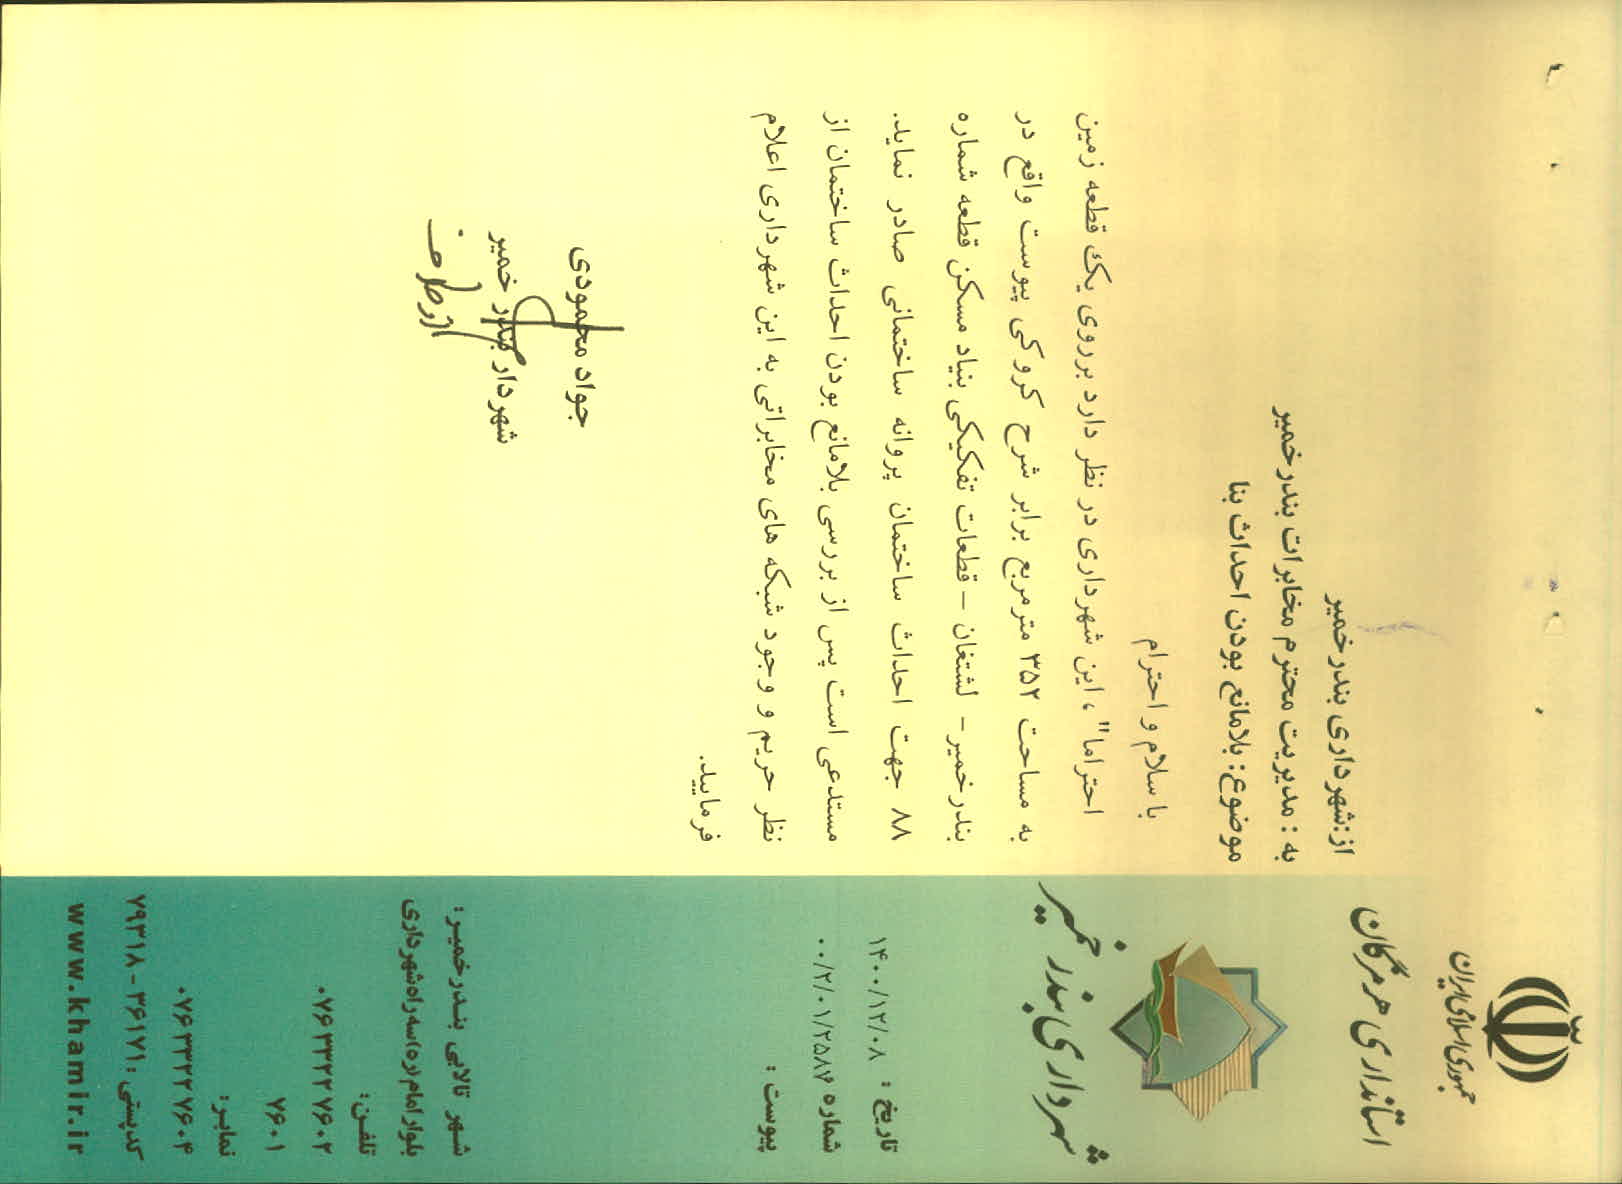 جمهوری اسلامی ایران
استانداری هرمزگان
شهرداری بندر خمیر
تاریخ : ۱۴۰۰/۱۲/۰۸
شماره ۰۰/۲/۰۱/۲۵۸۷
پیوست :
شهر تالابی بندرخمیر :
بلوار امام (ره) سه راه شهرداری
تلفن:
۰۷۶۳۳۲۲۷۶۰۲
۷۶۰۱
نمابر:
۰۷۶۳۳۲۲۷۶۰۴
کدپستی : ۳۶۱۷۱ - ۷۹۳۱۸
www.khamir.ir
از:شهرداری بندرخمیر
به : مدیریت محترم مخابرات بندرخمیر
موضوع: بلامانع بودن احداث بنا
با سلام و احترام
احتراما" ، این شهرداری در نظر دارد برروی یک قطعه زمین
به مساحت ۳۵۲ مترمربع برابر شرح کروکی پیوست واقع در
بندرخمیر- لشتغان – قطعات تفکیکی بنیاد مسکن قطعه شماره
۸۸ جهت احداث ساختمان پروانه ساختمانی صادر نماید.
مستدعی است پس از بررسی بلامانع بودن احداث ساختمان از
نظر حریم و وجود شبکه های مخابراتی به این شهرداری اعلام
فرمایید.
جواد محمودی
شهردار بندر خمیر
از طرف